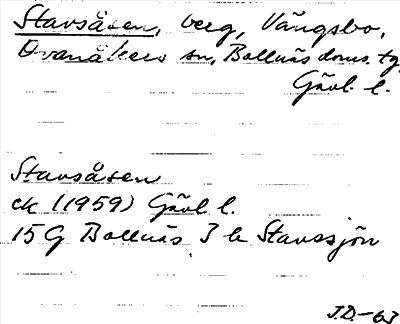 Stavsåsen, berg, Vängsbo,
Ovanåkers sn, Bollnäs doms. tg,
Gävl. l.
Stavsåsen
ek (1959) Gävl l.
15G Bollnäs 3 b Stavssjön
J.D.-63